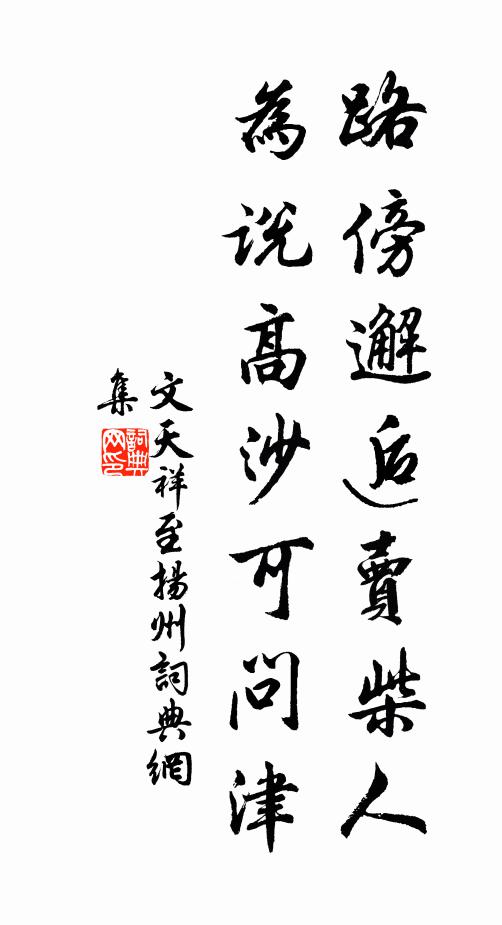 路傍邂逅賣柴人
為説高沙可問津
文天祥至揚州詞典網
集
詞典
网印